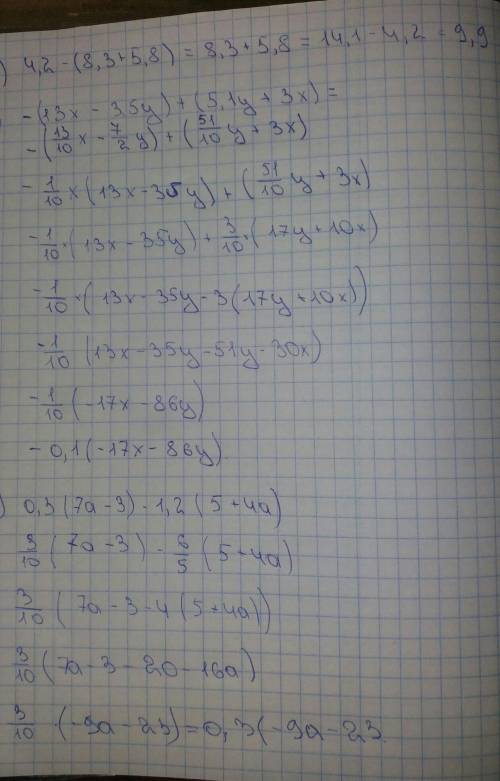 ) 4,2 - (8,3+5,8) = 8,3+5,8 = 14,1 - 4,2 = 9,9
-(13x - 3,5y) + (5,1y + 3x) =
-(13/10 x - 7/2 y) + (51/10 y + 3x)
-1/10 x (13x - 35y) + (51/10 y + 3x)
-1/10 · (13x - 35y) + 3/10 · (17y + 10x)
-1/10 · (13x - 35y - 3(17y + 10x))
-1/10 (13x - 35y - 51y - 30x)
-1/10 (-17x - 86y)
-0,1 (-17x - 86y)
) 0,3 (7a - 3) - 1,2 (5 + 4a)
3/10 (7a - 3) - 6/5 (5 + 4a)
3/10 (7a - 3 - 4 (5 + 4a))
3/10 (7a - 3 - 20 - 16a)
3/10 · (-9a - 23) = 0,3 (-9a - 23